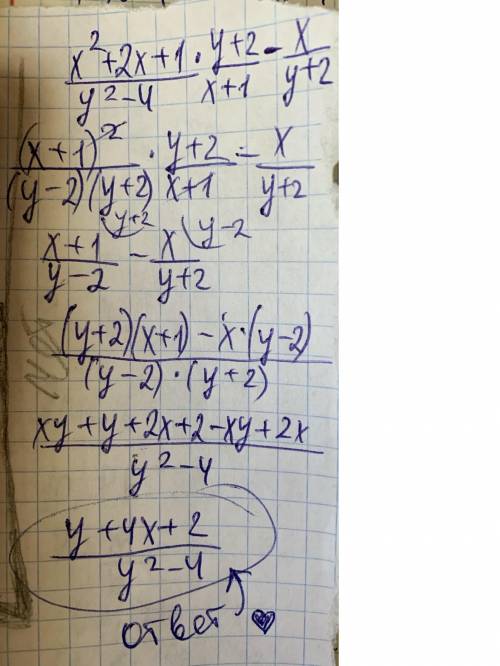 x²+2x+1 / y²-4 · y+2 / x+1 - x / y+2
(x+1)² / (y-2)(y+2) · y+2 / x+1 - x / y+2
x+1 / y-2 (y+2 - x / y+2 (y-2
(y+2)(x+1)-x·(y-2) / (y-2)·(y+2)
xy+y+2x+2-xy+2x / y²-4
y+4x+2 / y²-4
ответ